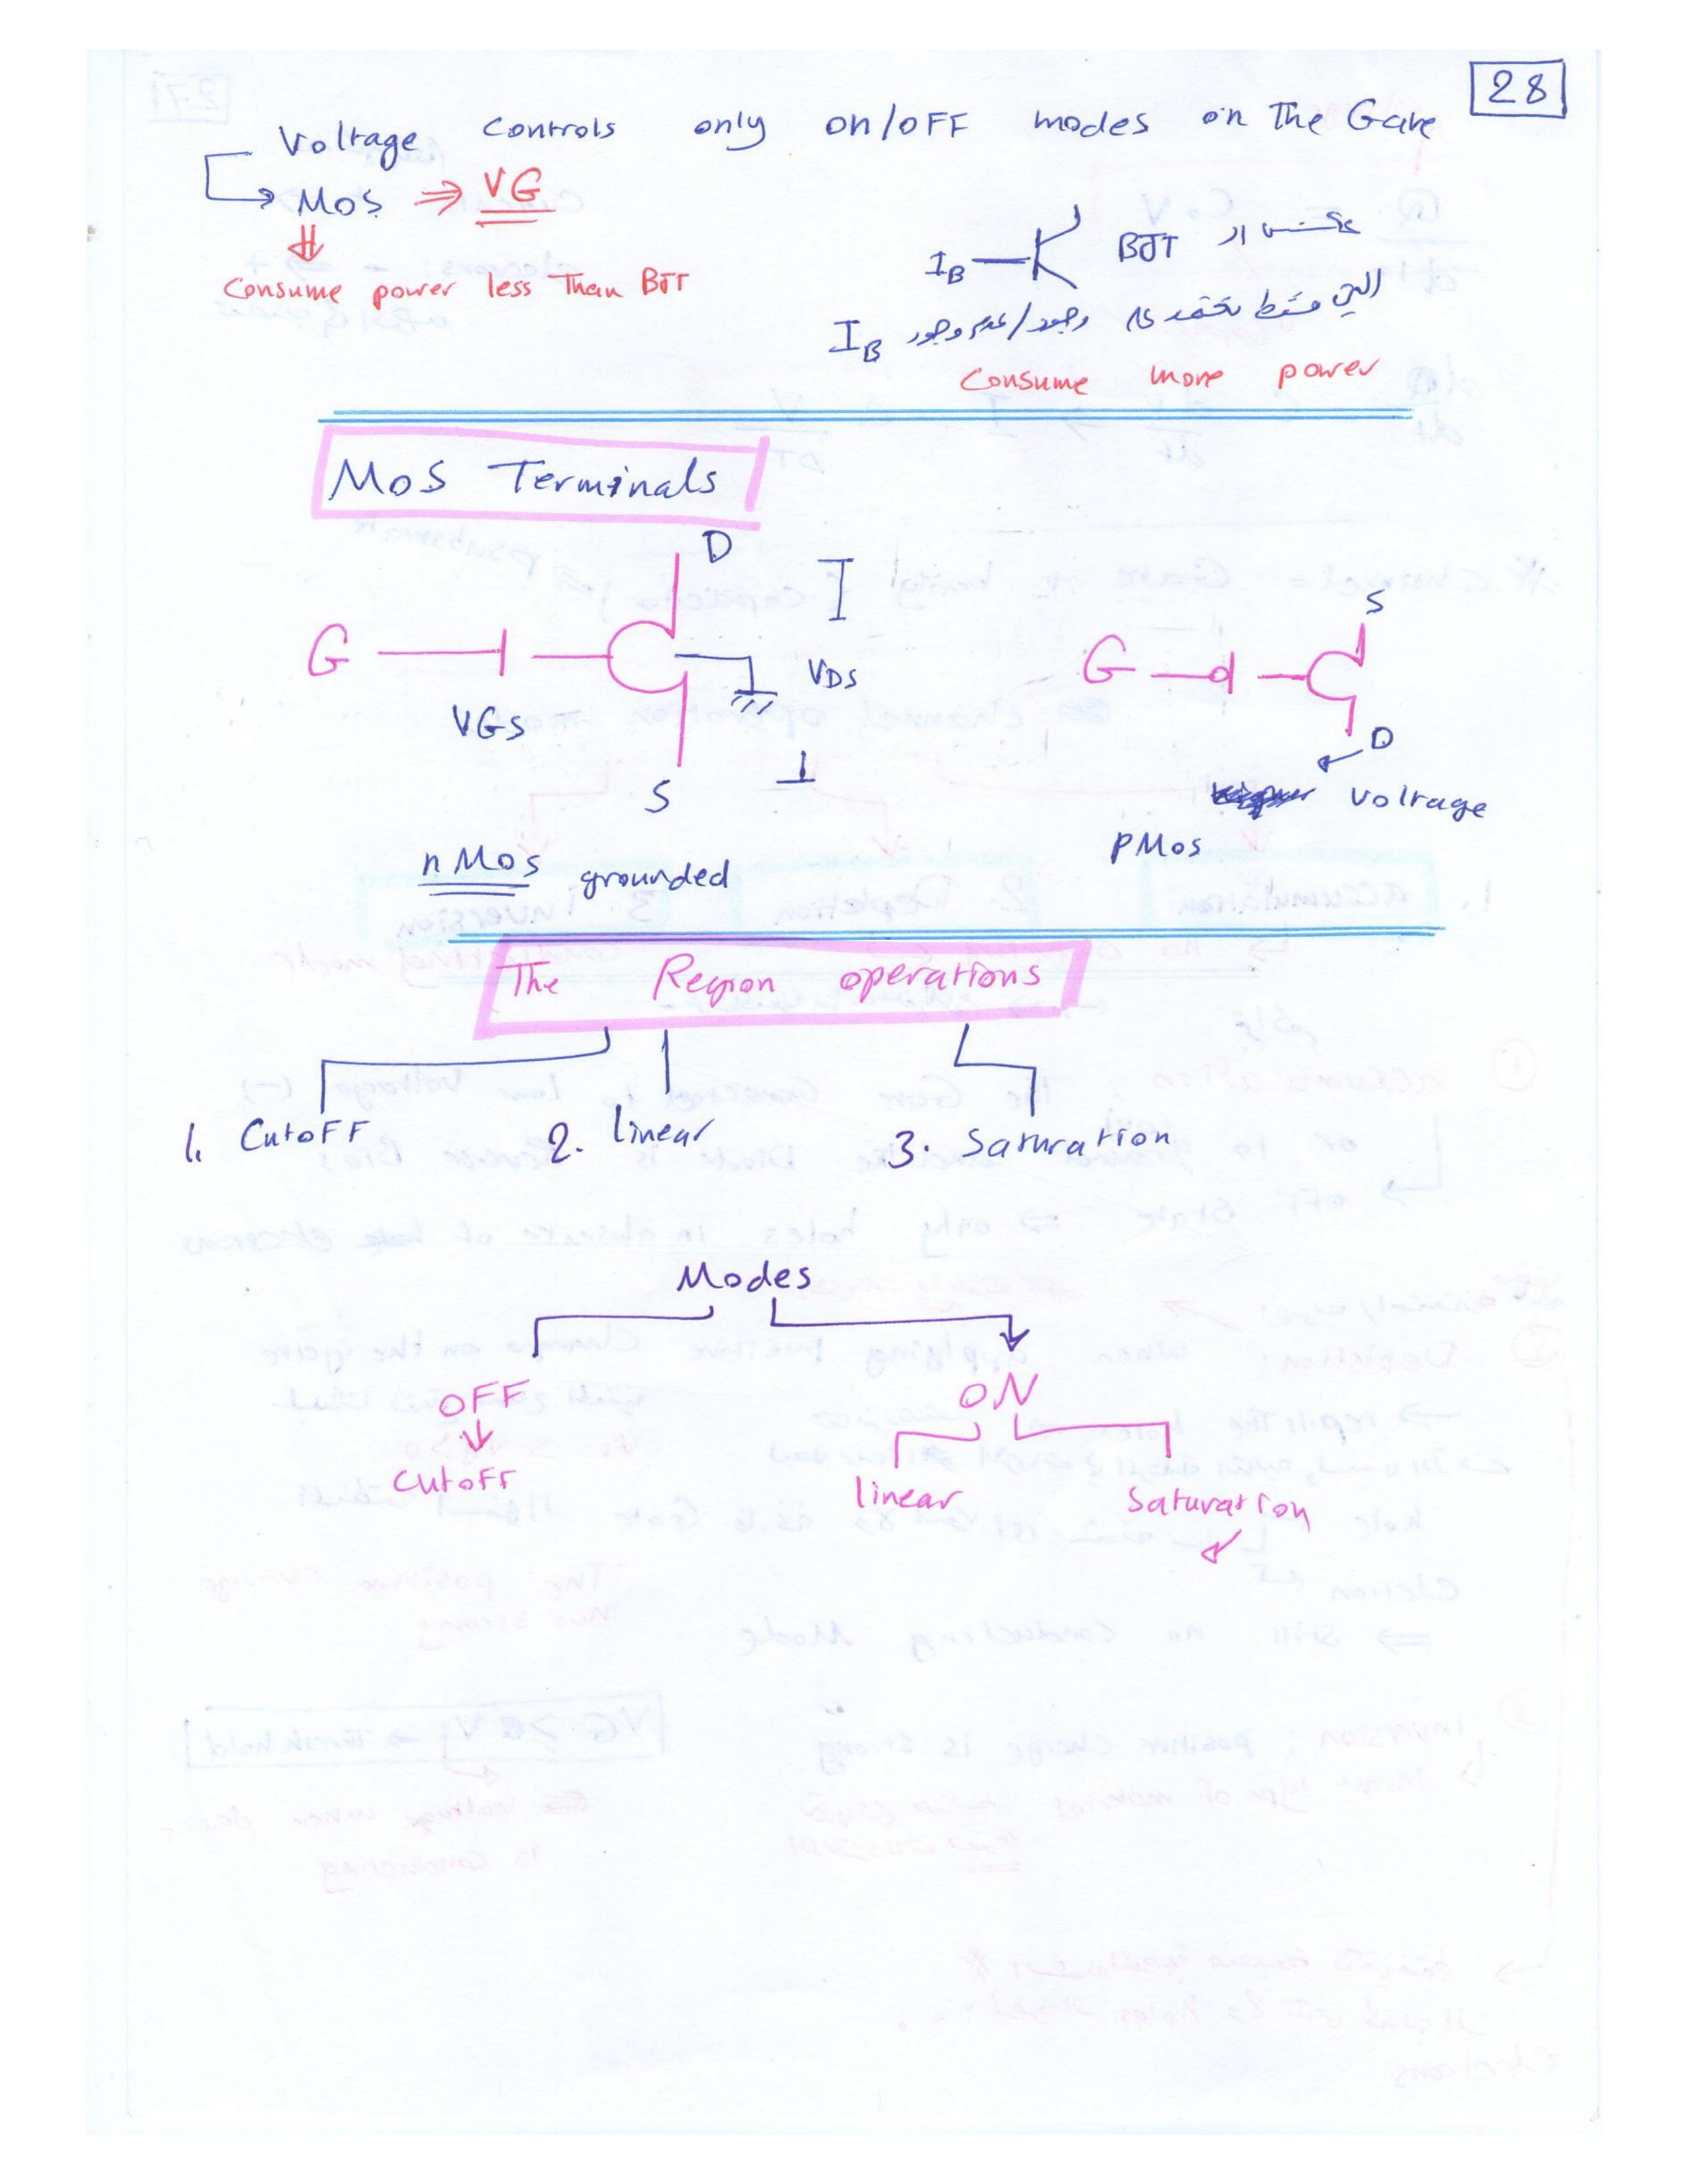 28
Voltage Controls only on/OFF modes on The Gate
MOS ⇒ VG
Consume power less Than BJT
IB BJT عكس الـ
IB التي فقط تعتمد على وجود/عدم وجود
Consume more power
MOS Terminals
D I S
G VDS G
VGS D
S voltage
nMos grounded pMos
The Region operations
1. CutoFF 2. linear 3. Saturation
Modes
OFF ON
CutoFF linear Saturation